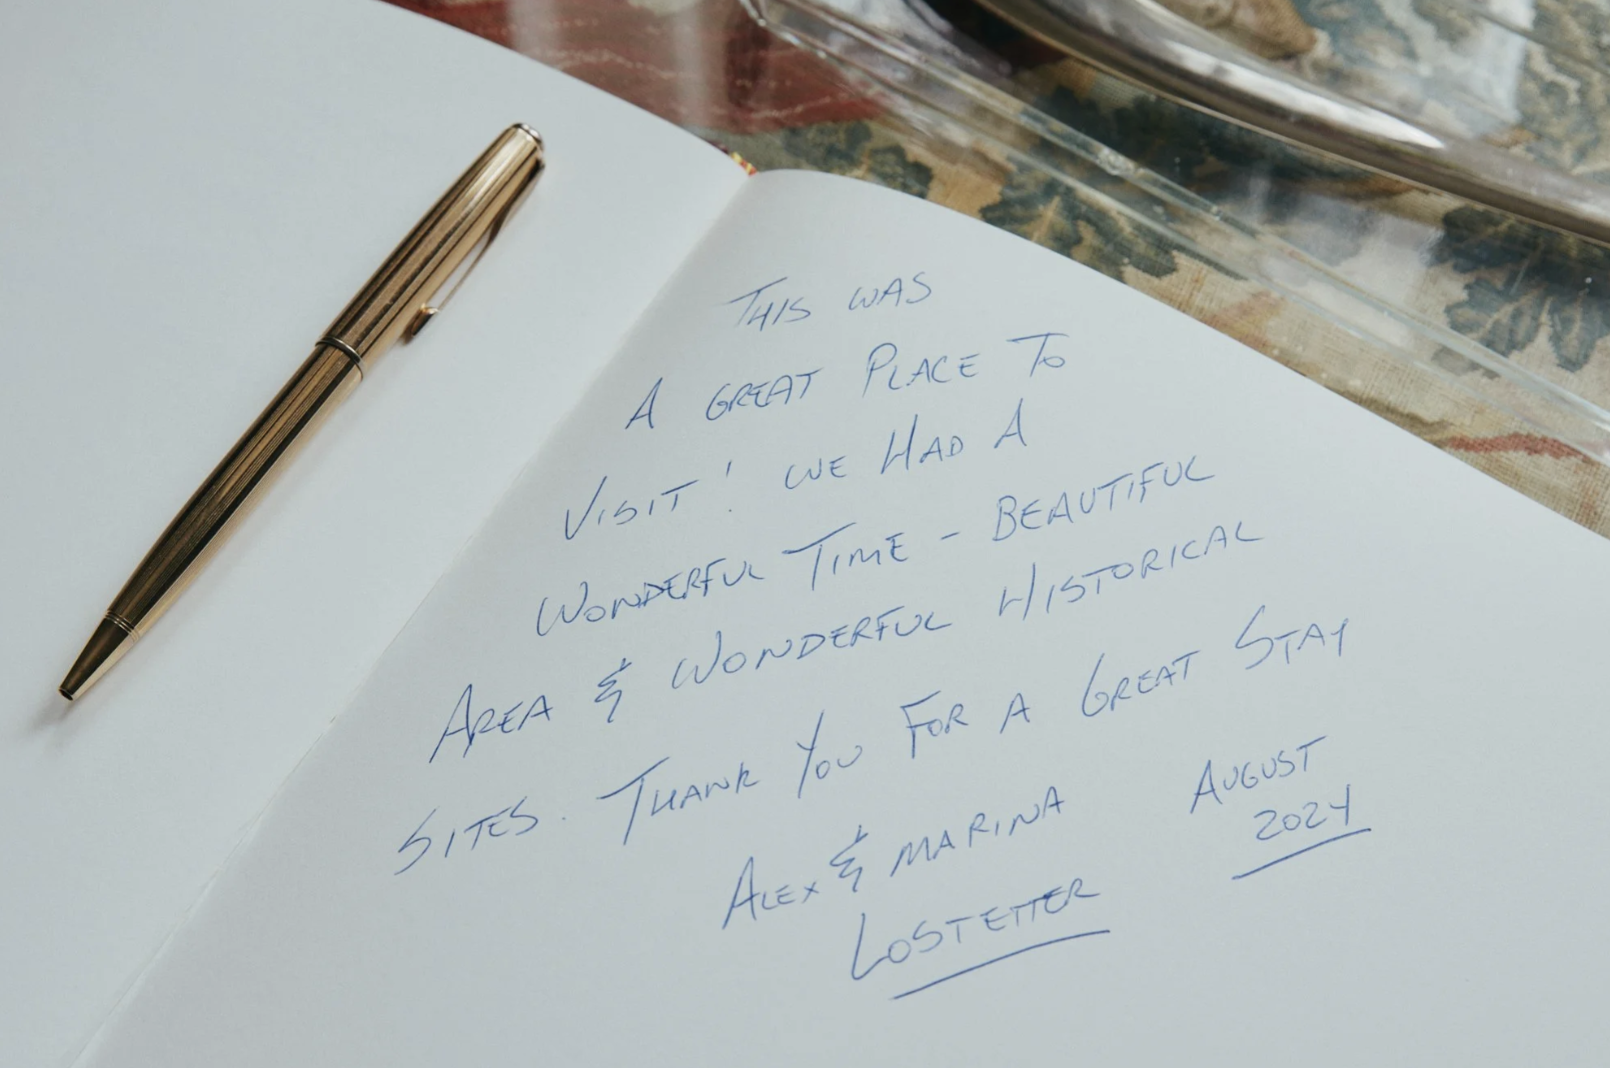 THIS WAS
A GREAT PLACE TO
VISIT! WE HAD A
WONDERFUL TIME - BEAUTIFUL
AREA & WONDERFUL HISTORICAL
SITES. THANK YOU FOR A GREAT STAY
ALEX & MARINA
LOSTETTER
AUGUST
2024